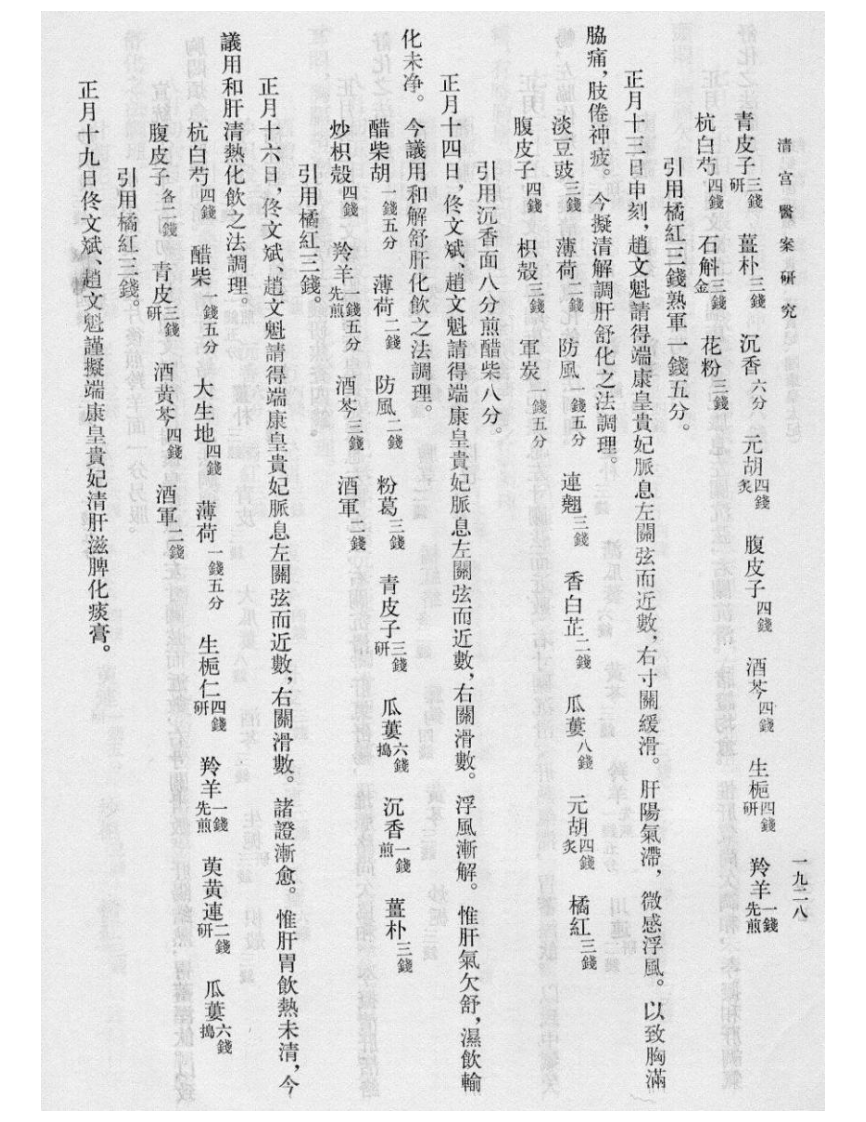 清宮醫案研究
一九二八
青皮子三錢研 薑朴三錢 沉香六分 元胡四錢炙 腹皮子四錢 酒芩四錢 生梔四錢研 羚羊一錢先煎
杭白芍四錢 石斛三錢金 花粉三錢
引用橘紅三錢熟軍一錢五分。
正月十三日申刻，趙文魁請得端康皇貴妃脈息左關弦而近數，右寸關緩滑。肝陽氣滯，微感浮風。以致胸滿
脇痛，肢倦神疲。今擬清解調肝舒化之法調理。
淡豆豉三錢 薄荷二錢 防風一錢五分 連翹三錢 香白芷二錢 瓜蔞八錢 元胡四錢炙 橘紅三錢
腹皮子四錢 枳殼三錢 軍炭一錢五分
引用沉香面八分煎醋柴八分。
正月十四日，佟文斌、趙文魁請得端康皇貴妃脈息左關弦而近數，右關滑數。浮風漸解。惟肝氣欠舒，濕飲輸
化未净。今議用和解舒肝化飲之法調理。
醋柴胡一錢五分 薄荷二錢 防風二錢 粉葛三錢 青皮子三錢研 瓜蔞六錢搗 沉香一錢煎 薑朴三錢
炒枳殼四錢 羚羊一錢五分先煎 酒芩三錢 酒軍二錢
引用橘紅三錢。
正月十六日，佟文斌、趙文魁請得端康皇貴妃脈息左關弦而近數，右關滑數。諸證漸愈。惟肝胃飲熱未清，今
議用和肝清熱化飲之法調理。
杭白芍四錢 醋柴一錢五分 大生地四錢 薄荷一錢五分 生梔仁四錢研 羚羊一錢先煎 萸黃連二錢研 瓜蔞六錢搗
腹皮子各二錢 青皮三錢研 酒黃芩四錢 酒軍二錢
引用橘紅三錢。
正月十九日佟文斌、趙文魁謹擬端康皇貴妃清肝滋脾化痰膏。